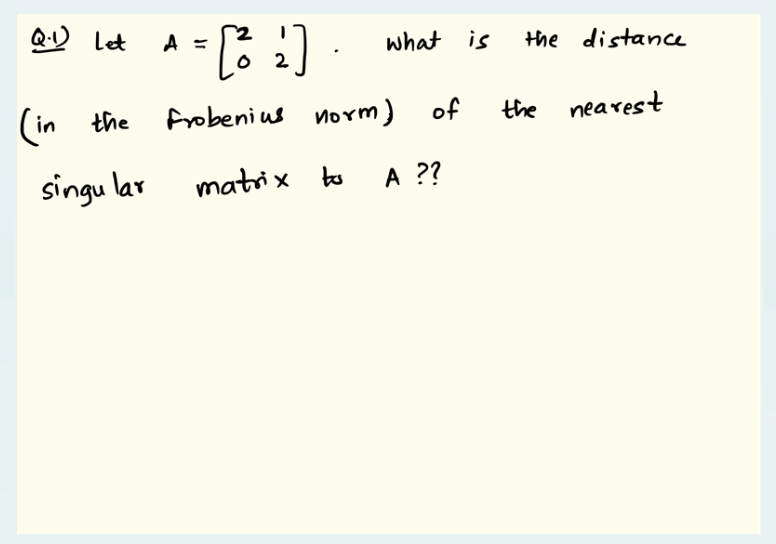 Q.1) Let A = [2 1
0 2] . What is the distance
(in the Frobenius norm) of the nearest
singular matrix to A ??